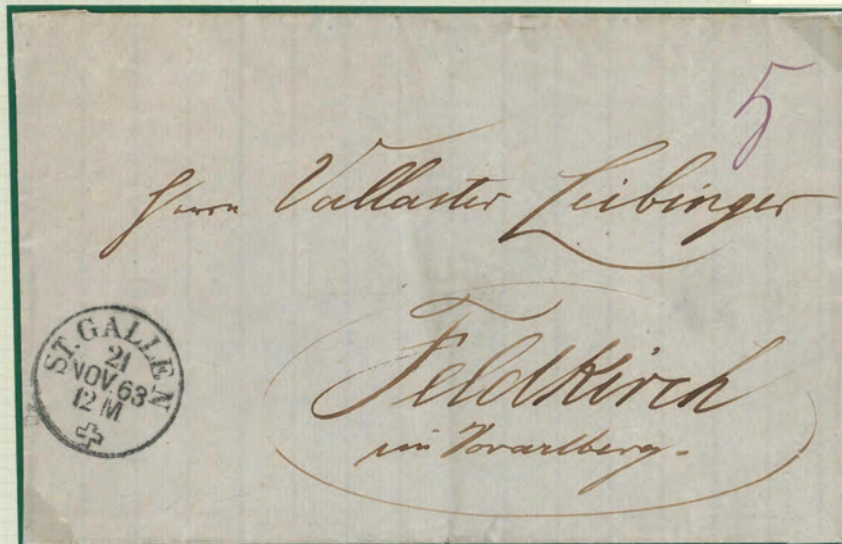 5
Herrn Vallaster Leibinger
Feldkirch
im Vorarlberg.
ST. GALLEN
21
NOV. 63
12 M